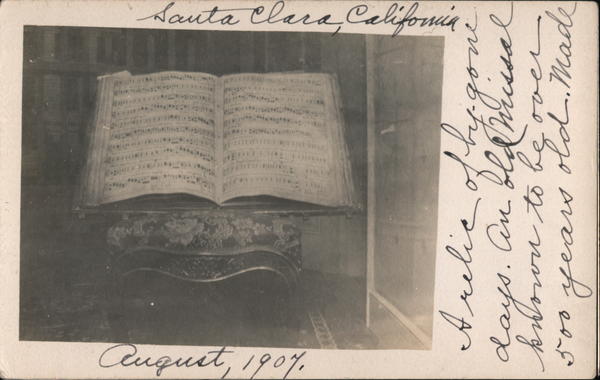 Santa Clara, California
A relic of by-gone
days. An old missal
known to be over
500 years old. Made
August, 1907.